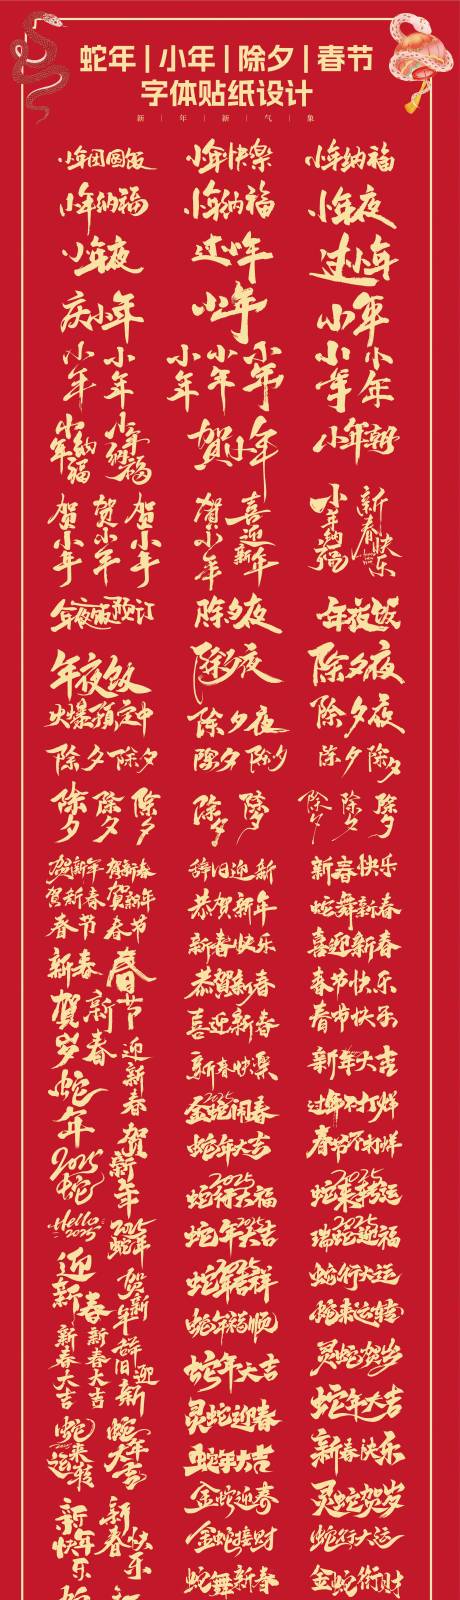 蛇年 | 小年 | 除夕 | 春节
字体贴纸设计
新 | 年 | 新 | 气 | 象
小年团圆饭
小年快樂
小年纳福
小年纳福
小年纳福
小年夜
小年夜
过小年
过小年
庆小年
小年
小年
小年
小年
小年
小年
小年
小年
小年
小年纳福
小年纳福
贺小年
小年朝
贺小年
贺小年
贺小年
贺小年
喜迎新年
小年纳福
新春快乐
年夜饭预订
除夕夜
年夜饭
年夜饭
火爆预定中
除夕夜
除夕夜
除夕夜
除夕夜
除夕
除夕
除夕
除夕
除夕
除夕
除夕
除夕
除夕
除夕
除夕
除夕
除夕
除夕
贺新年
贺新春
贺新春
贺新年
春节
春节
辞旧迎新
新春快乐
恭贺新年
蛇舞新春
新春
春节
新春快乐
喜迎新春
贺岁
新春
恭贺新春
春节快乐
喜迎新春
春节快乐
迎新春
新春快樂
新年大吉
蛇年
2025
金蛇闹春
过年不打烊
贺新年
蛇年大吉
春节不打烊
2025
蛇
2025
蛇行大福
2025
蛇来转运
Hello
2025
2025
蛇年
2025
蛇年大吉
2025
瑞蛇迎福
迎新春
贺新年
蛇行大运
蛇年福顺
蛇来运转
新春大吉
新春大吉
辞旧迎新
蛇年大吉
灵蛇贺岁
灵蛇迎春
蛇年大吉
蛇来运转
蛇年大吉
蛇年大吉
新春快乐
金蛇迎春
灵蛇贺岁
新年快乐
新春快乐
金蛇接财
蛇行大运
蛇舞新春
金蛇衔财